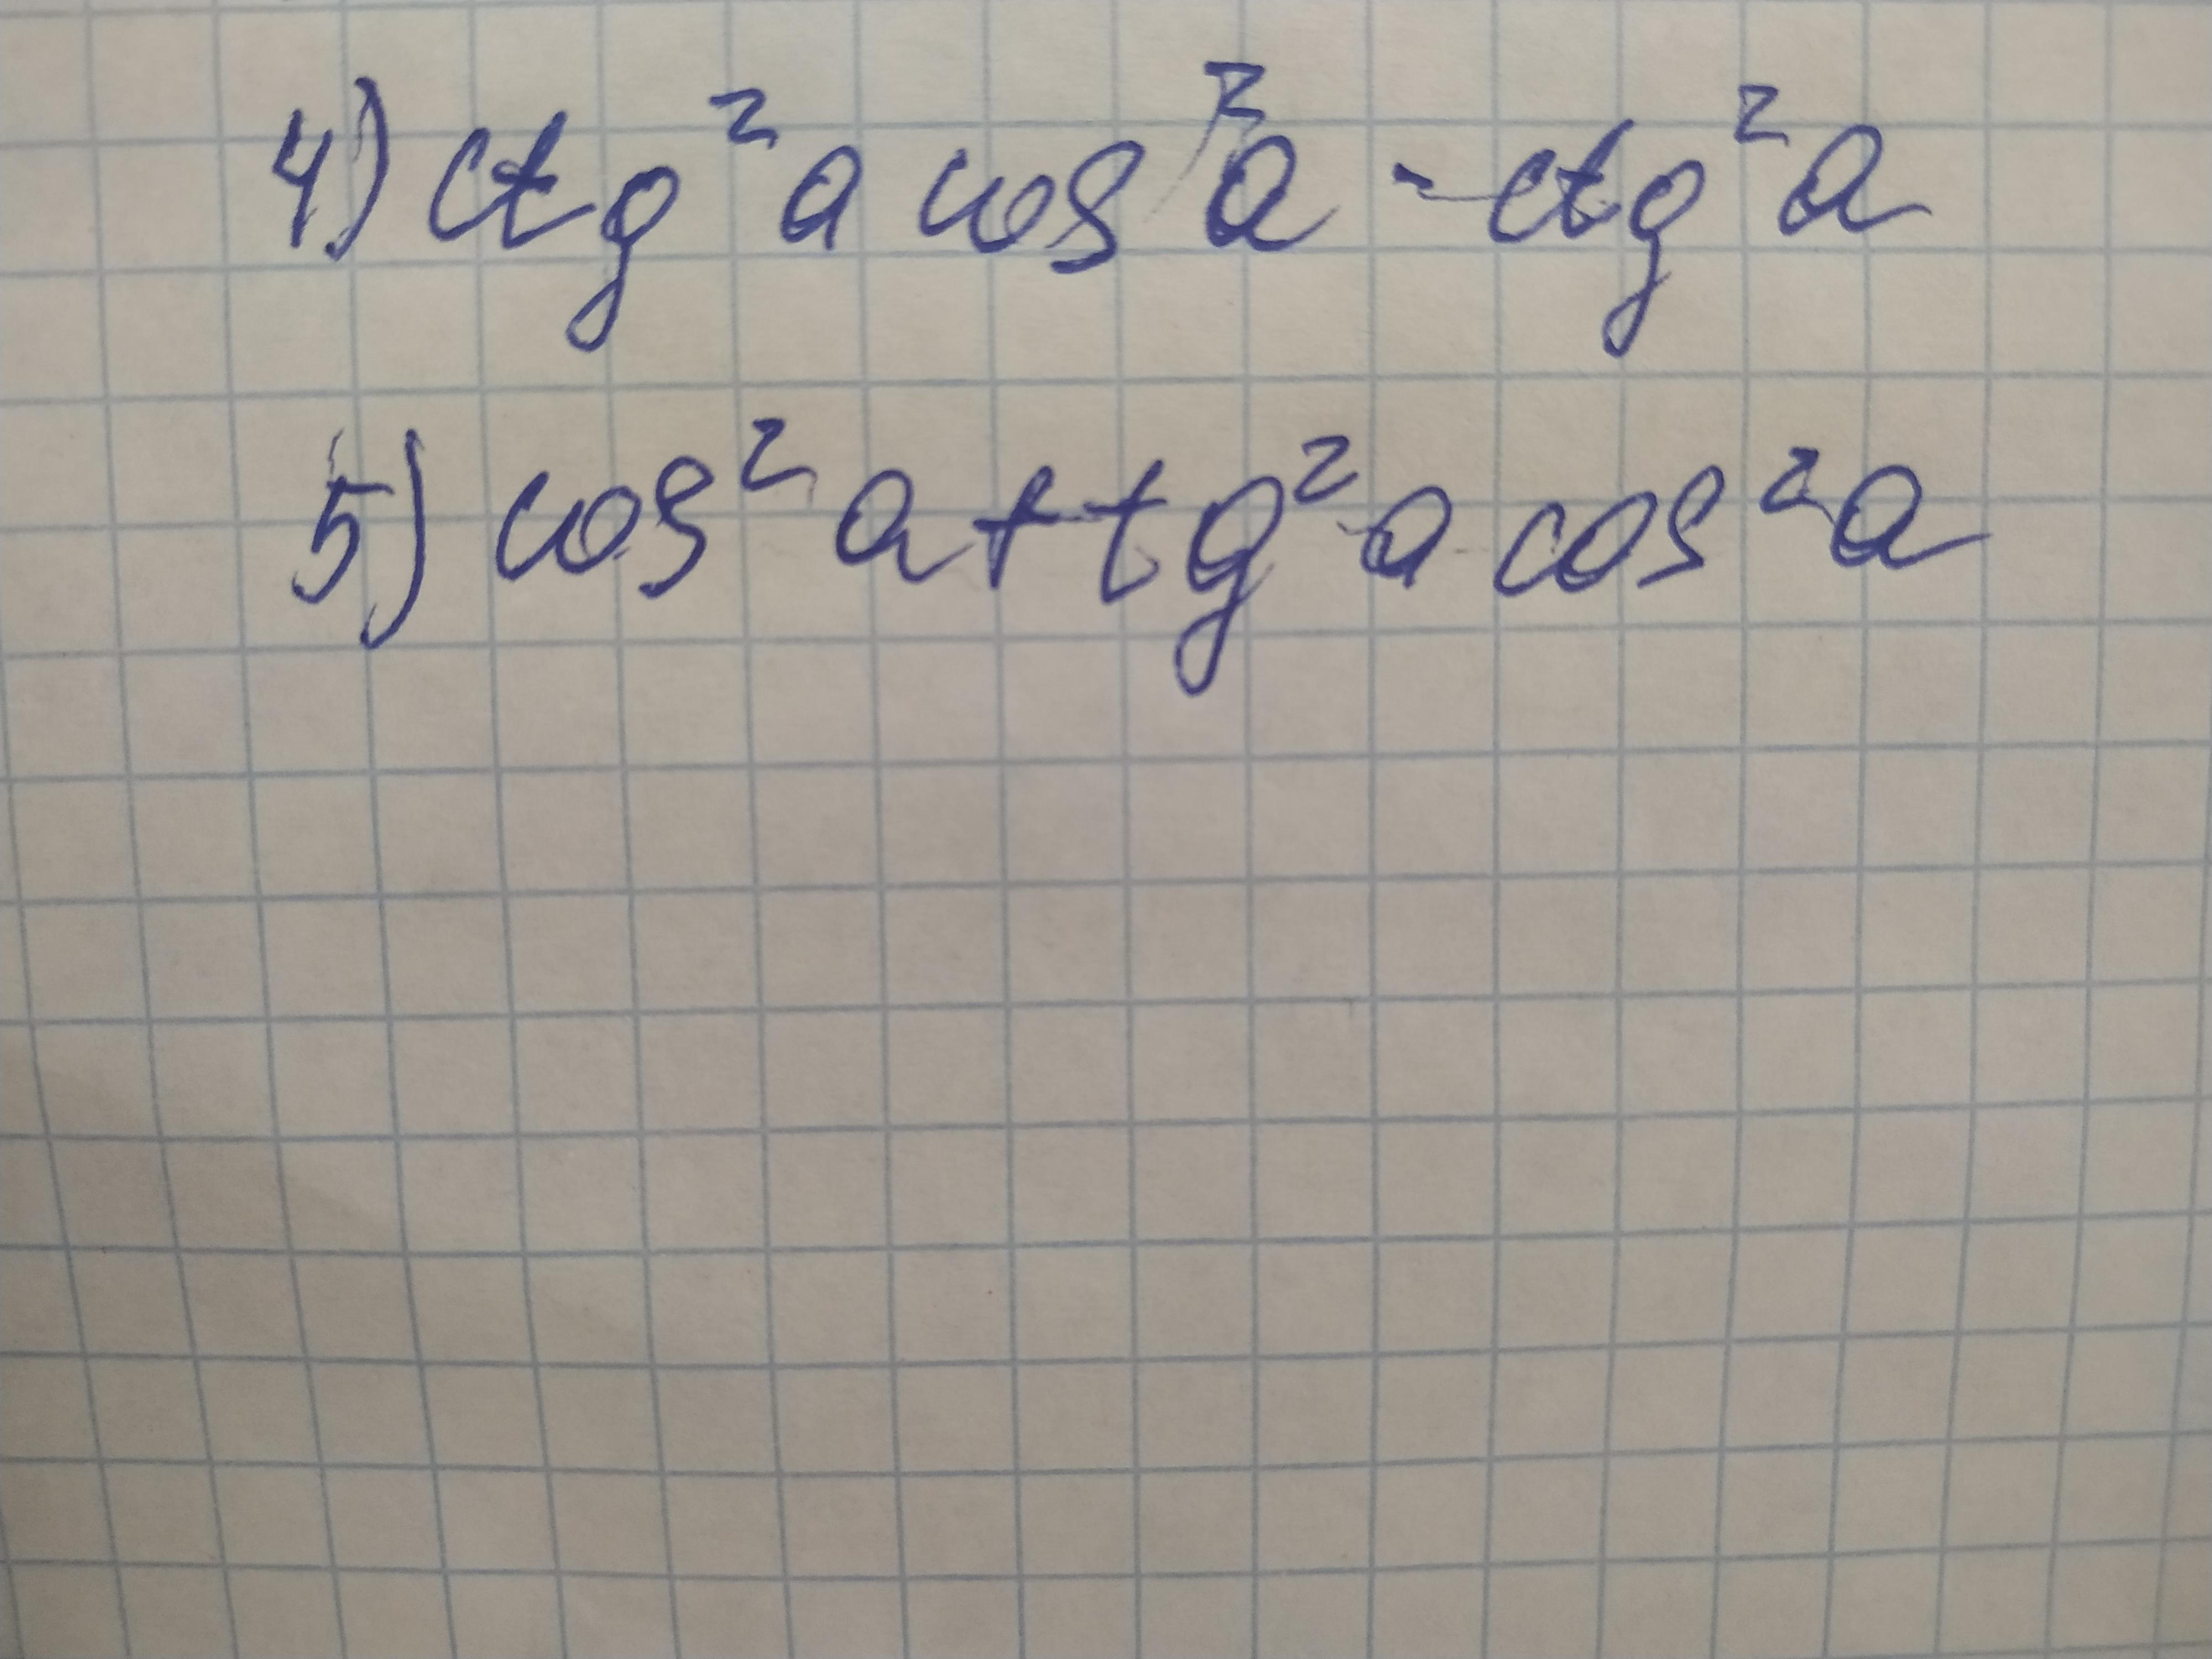 4) ctg²a cos²a - ctg²a
5) cos²a + tg²a cos²a